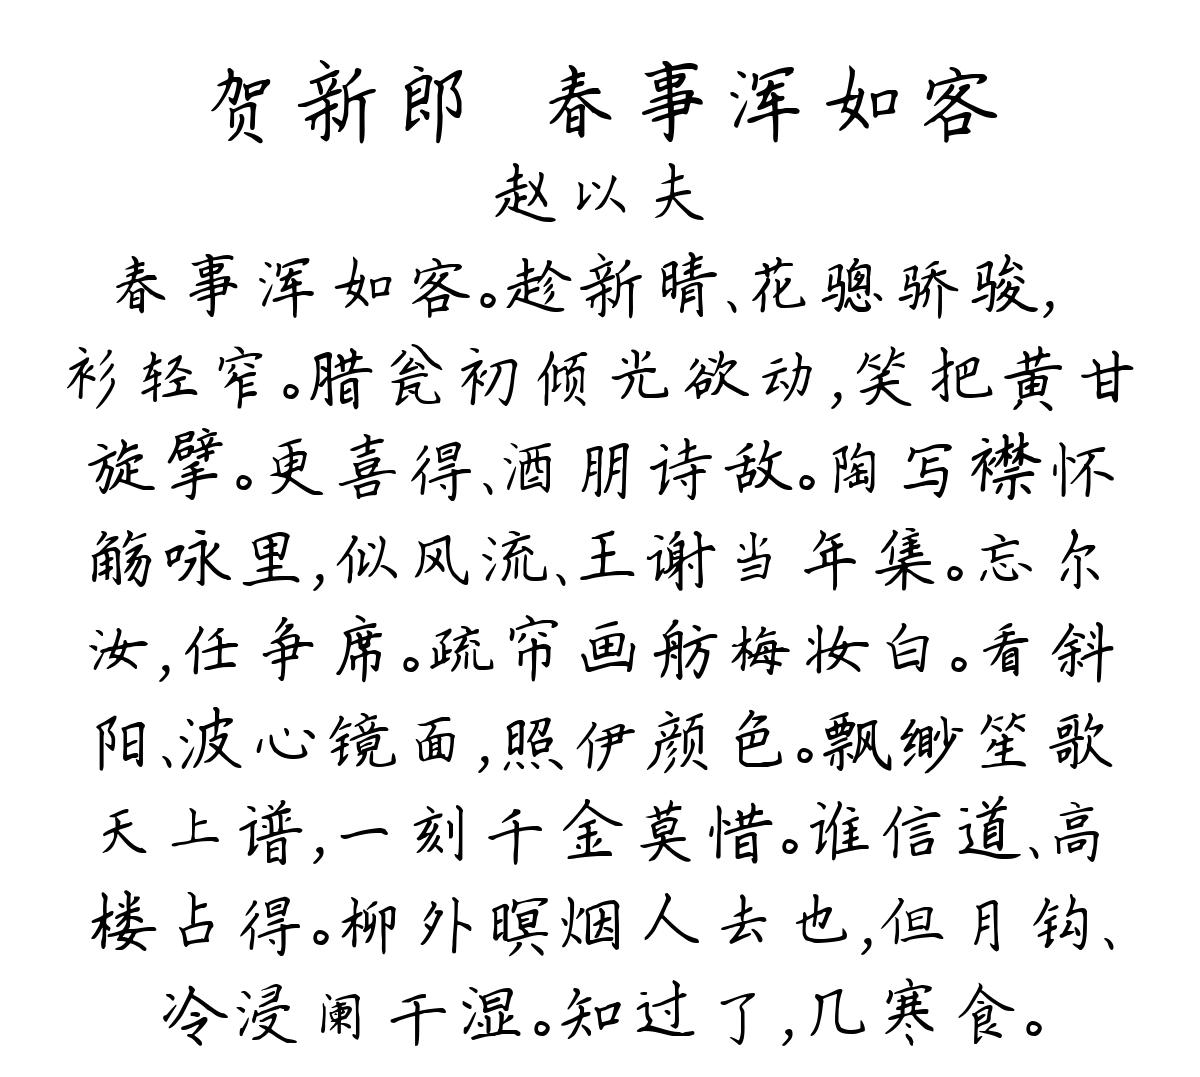 贺新郎 春事浑如客
赵以夫
春事浑如客。趁新晴、花骢骄骏,
衫轻窄。腊瓮初倾光欲动,笑把黄甘
旋擘。更喜得、酒朋诗敌。陶写襟怀
觞咏里,似风流、王谢当年集。忘尔
汝,任争席。疏帘画舫梅妆白。看斜
阳、波心镜面,照伊颜色。飘缈笙歌
天上谱,一刻千金莫惜。谁信道、高
楼占得。柳外暝烟人去也,但月钩、
冷浸阑干湿。知过了,几寒食。